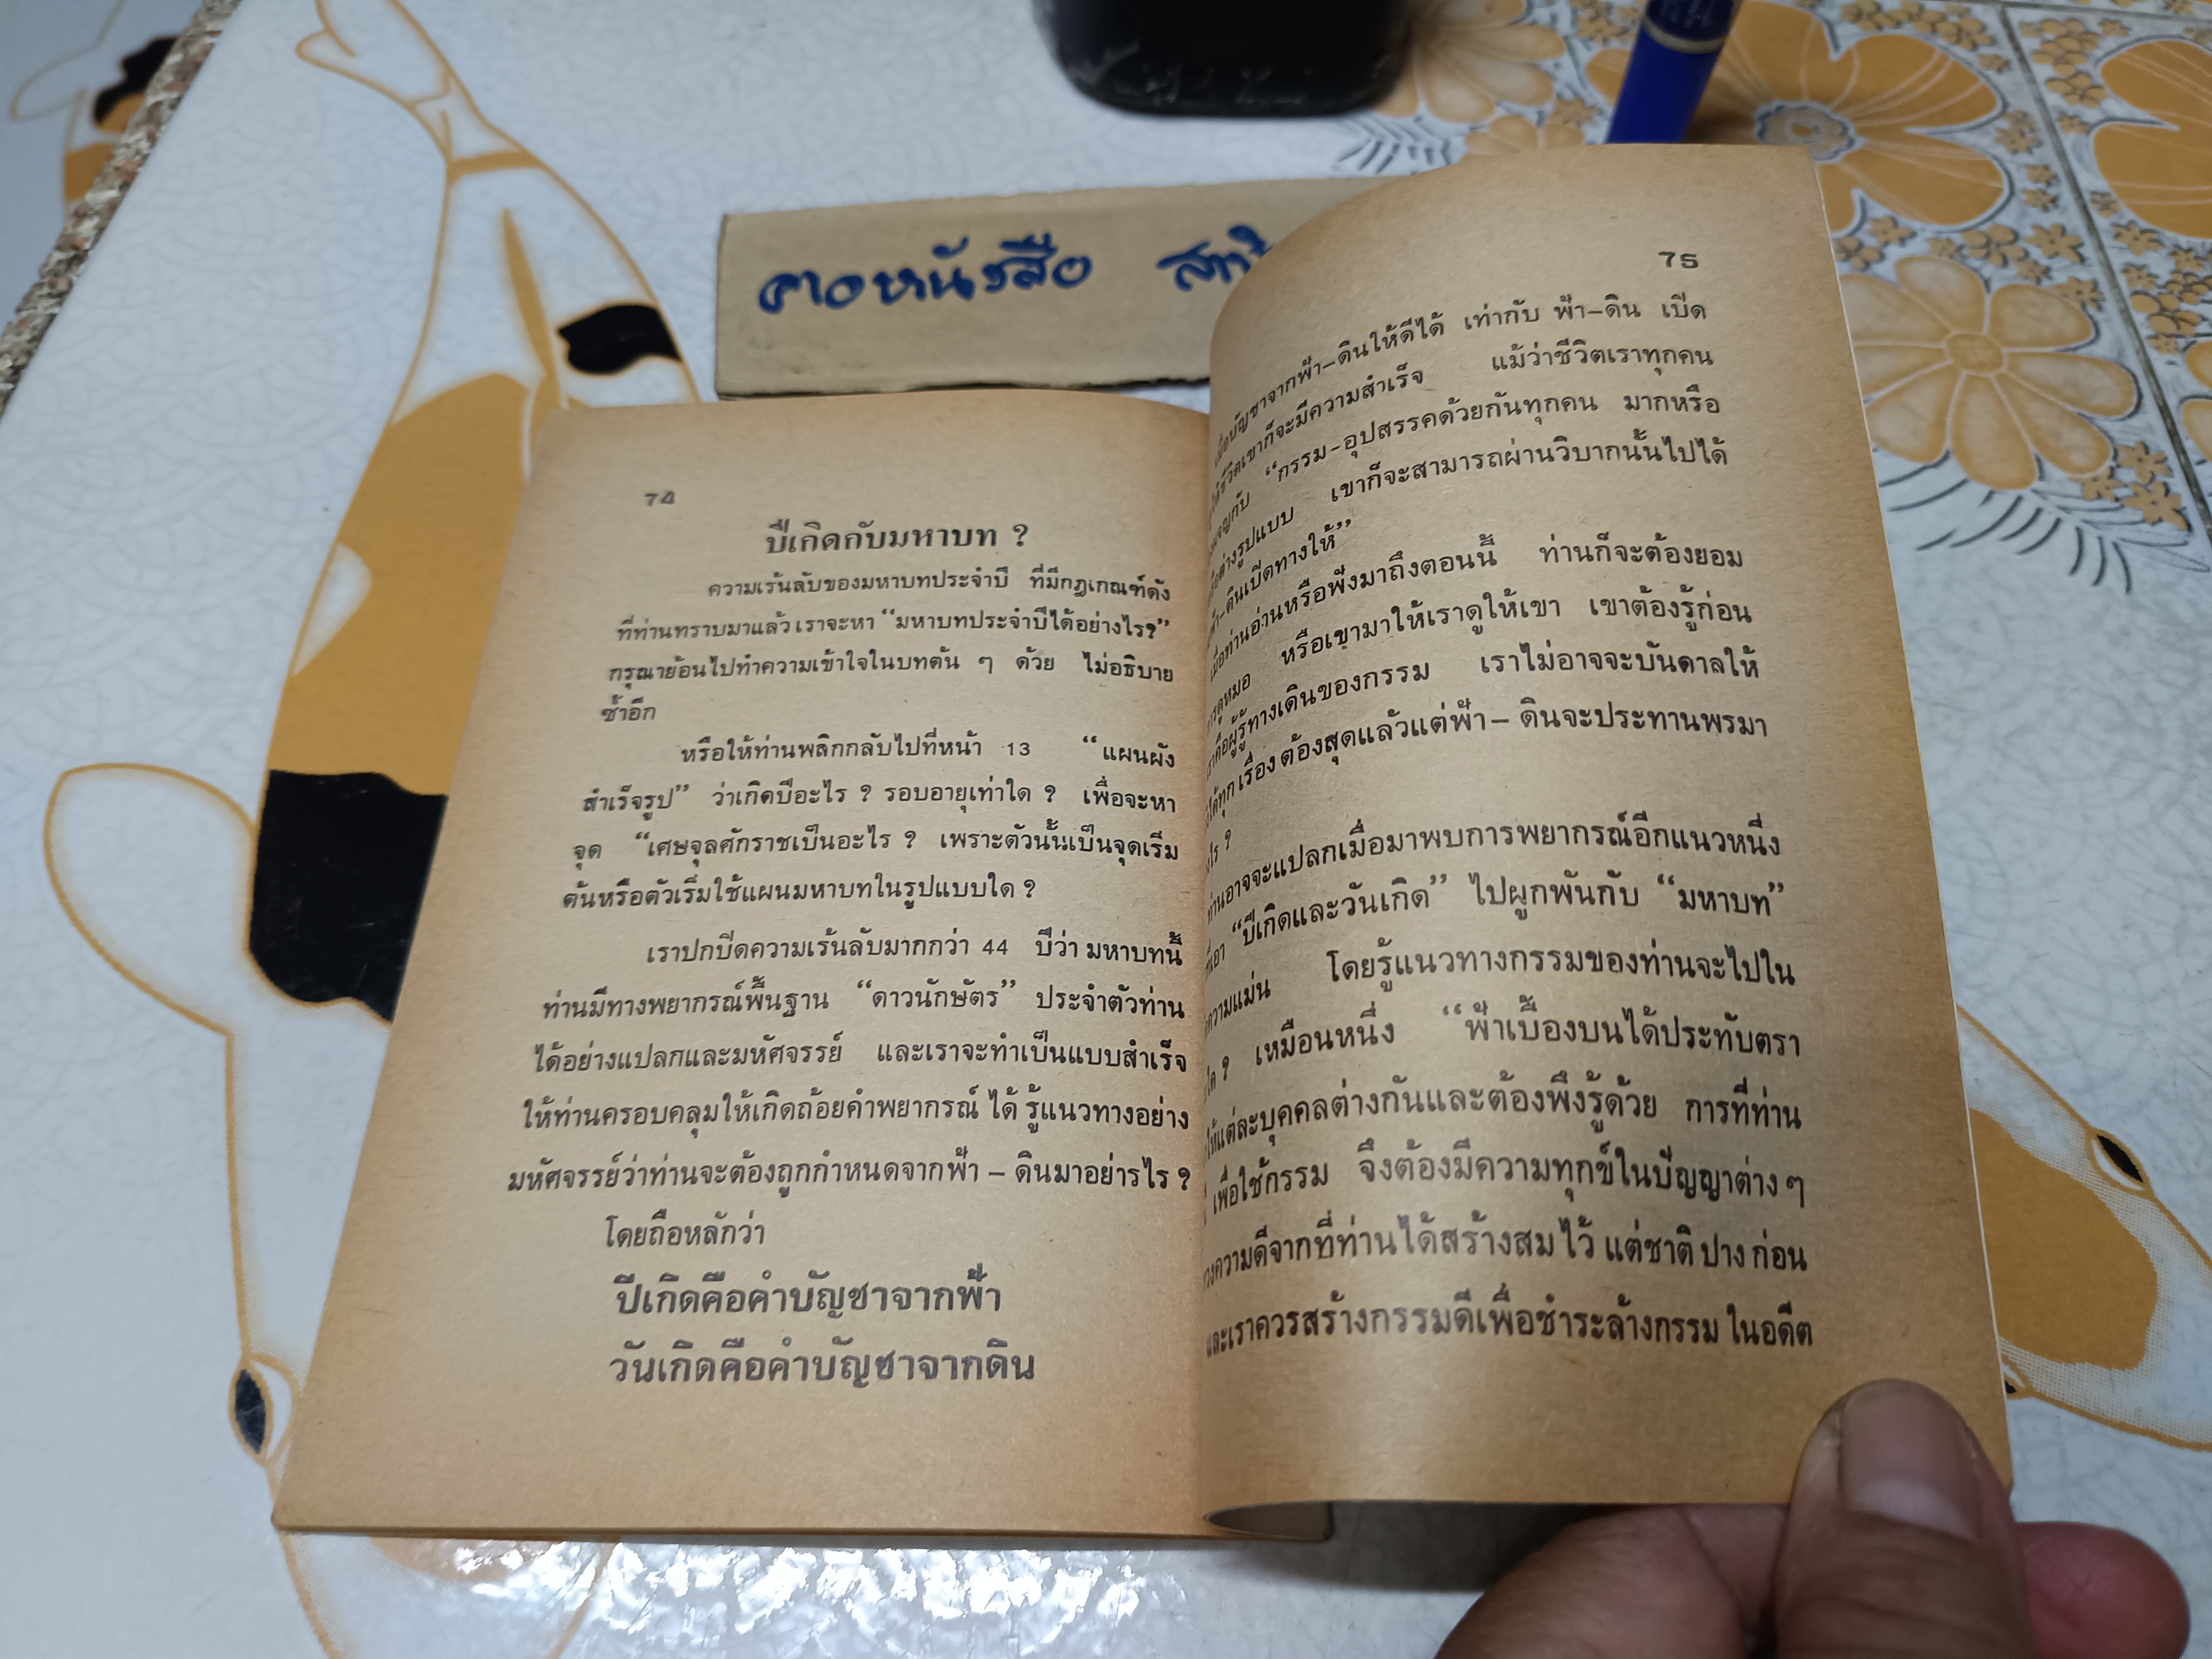 ดาวหนังสือ
74
ปีเกิดกับมหาบท ?
ความเร้นลับของมหาบทประจำปี ที่มีกฎเกณฑ์ดัง
ที่ท่านทราบมาแล้ว เราจะหา “มหาบทประจำปีได้อย่างไร?”
กรุณาย้อนไปทำความเข้าใจในบทต้น ๆ ด้วย ไม่อธิบาย
ซ้ำอีก
หรือให้ท่านพลิกกลับไปที่หน้า 13 “แผนผัง
สำเร็จรูป” ว่าเกิดปีอะไร ? รอบอายุเท่าใด ? เพื่อจะหา
จุด “เศษจุลศักราชเป็นอะไร ? เพราะตัวนั้นเป็นจุดเริ่ม
ต้นหรือตัวเริ่มใช้แผนมหาบทในรูปแบบใด ?
เราปกปิดความเร้นลับมากกว่า 44 ปีว่า มหาบทนี้
ท่านมีทางพยากรณ์พื้นฐาน “ดาวนักษัตร” ประจำตัวท่าน
ได้อย่างแปลกและมหัศจรรย์ และเราจะทำเป็นแบบสำเร็จ
ให้ท่านครอบคลุมให้เกิดถ้อยคำพยากรณ์ ได้ รู้แนวทางอย่าง
มหัศจรรย์ว่าท่านจะต้องถูกกำหนดจากฟ้า – ดินมาอย่ารไร ?
โดยถือหลักว่า
ปีเกิดคือคำบัญชาจากฟ้า
วันเกิดคือคำบัญชาจากดิน
75
เมื่อบัญชาจากฟ้า–ดินให้ดีได้ เท่ากับ ฟ้า–ดิน เปิด
ให้ชีวิตเขาก็จะมีความสำเร็จ แม้ว่าชีวิตเราทุกคน
“กรรม-อุปสรรคด้วยกันทุกคน มากหรือ
ต่างรูปแบบ เขาก็จะสามารถผ่านวิบากนั้นไปได้
ฟ้า–ดินเปิดทางให้”
เมื่อท่านอ่านหรือฟังมาถึงตอนนี้ ท่านก็จะต้องยอม
หรือเขามาให้เราดูให้เขา เขาต้องรู้ก่อน
คือผู้รู้ทางเดินของกรรม เราไม่อาจจะบันดาลให้
ได้ทุก เรื่อง ต้องสุดแล้วแต่ฟ้า – ดินจะประทานพรมา
ไร ?
ท่านอาจจะแปลกเมื่อมาพบการพยากรณ์อีกแนวหนึ่ง
ที่เอา “ปีเกิดและวันเกิด” ไปผูกพันกับ “มหาบท”
ความแม่น โดยรู้แนวทางกรรมของท่านจะไปใน
ใด ? เหมือนหนึ่ง “ฟ้าเบื้องบนได้ประทับตรา
ให้แต่ละบุคคลต่างกันและต้องพึงรู้ด้วย การที่ท่าน
เพื่อใช้กรรม จึงต้องมีความทุกข์ในปัญญาต่าง ๆ
ความดีจากที่ท่านได้สร้างสม ไว้ แต่ชาติ ปาง ก่อน
และเราควรสร้างกรรมดีเพื่อชำระล้างกรรม ในอดีต